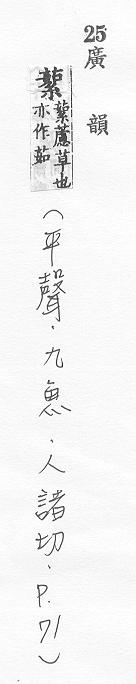 25 廣韻
蕠 蕠藘草也
亦作茹
(平聲．九魚．人諸切．P.71)